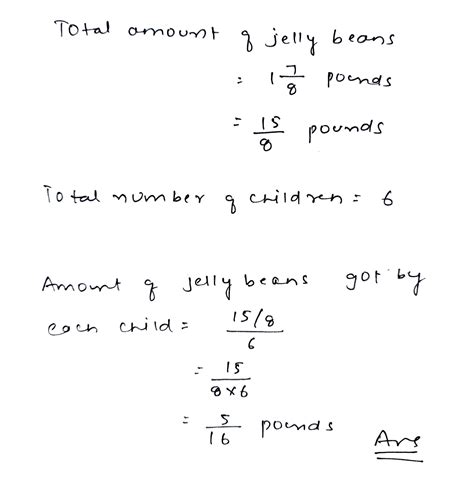 Total amount of jelly beans
= 1 7/8 pounds
= 15/8 pounds
Total number of children = 6
Amount of jelly beans got by
each child = 15/8 / 6
= 15 / 8×6
= 5/16 pounds Ans